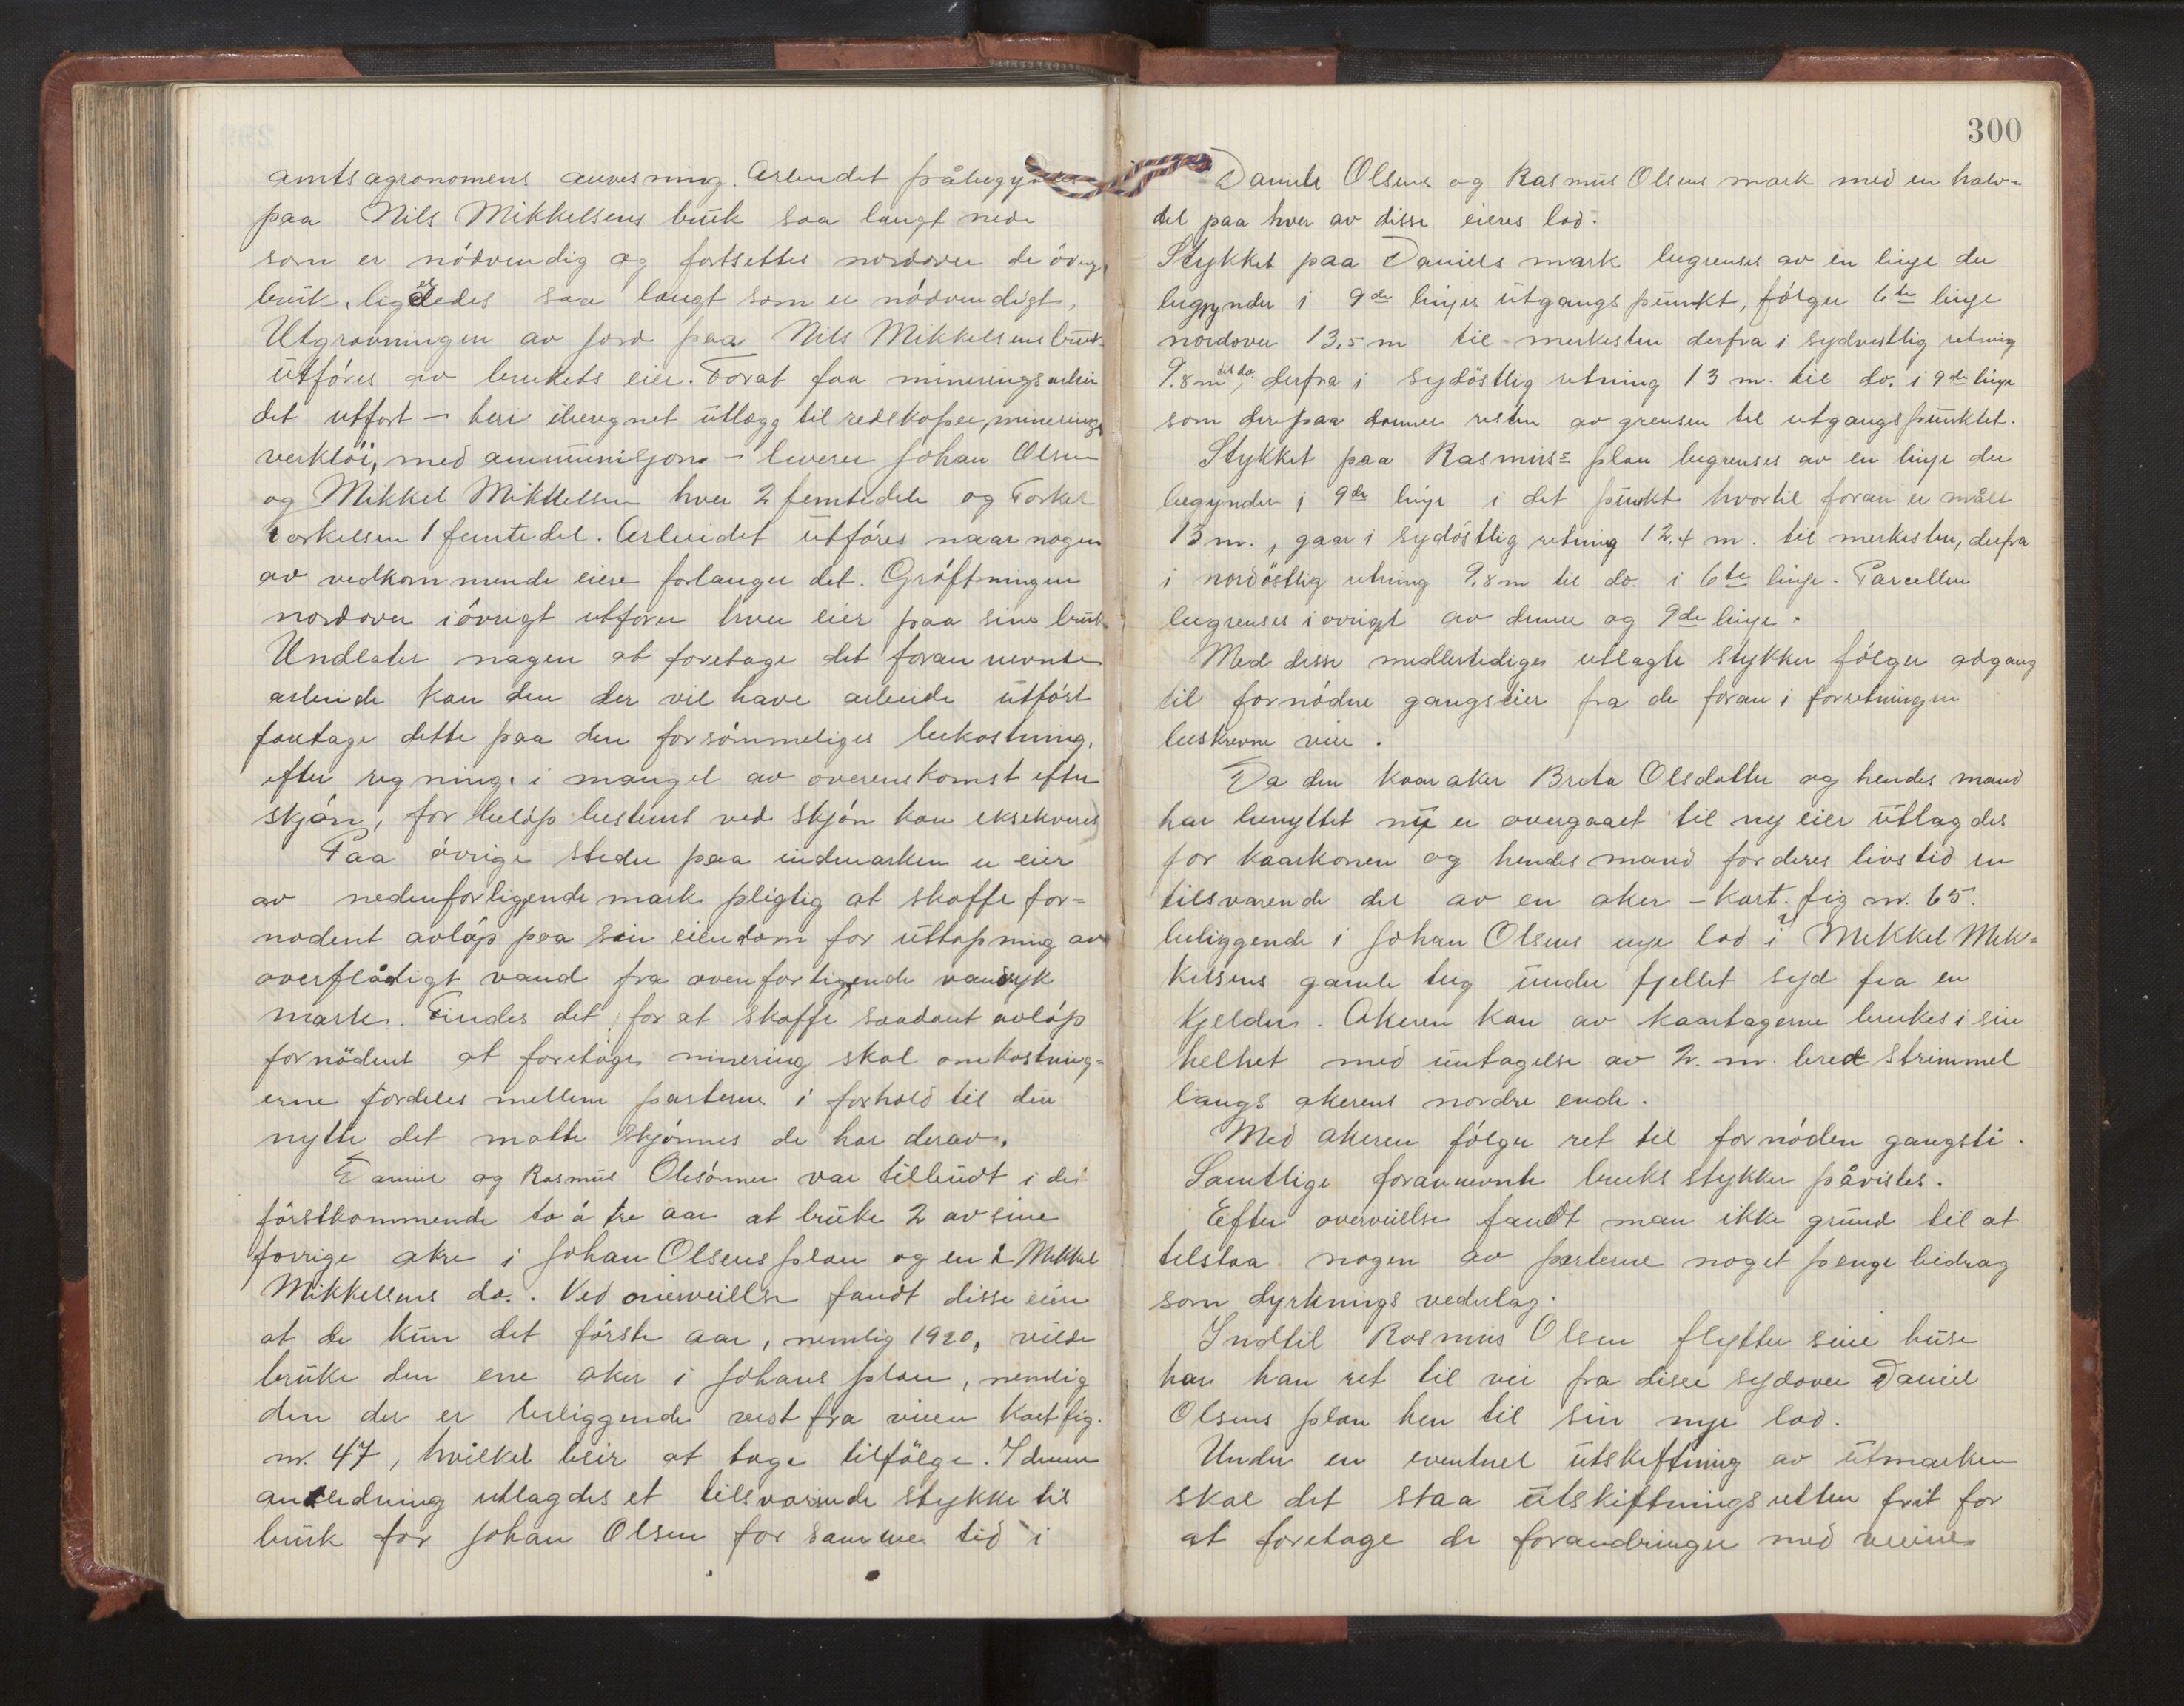 amtsagronomens anvisning. Arbeidet påbegyndes
paa Nils Mikkelsens bruk saa langt nede
som er nödvendig og fortsettes nordover de övrige
bruk, ligeledes saa langt som er nödvendigt.
Utgravningen av jord paa Nils Mikkelsens bruk
utföres av brukets eier. Forat faa mineringsarbei
det utfört – heri iberegnet utlægg til redskaper, minerings
verktöi, med ammunisjon – leverer Johan Olsen
og Mikkel Mikkelsen hver 2 femtedele og Torkel
Torkelsen 1 femtedel. Arbeidet utföres naar nogen
av vedkommende eiere forlanger det. Gröftningen
nordover iövrigt utförer hver eier paa sine bruk.
Undlater nogen at foretage det foran nevnte
arbeide kan den der vil have arbeide utfört
foretage dette paa den forsömmeliges bekostning,
efter regning, i mangel av overenskomst efter
skjön, for belöp bestemt ved skjön kan eksekveres)
Paa övrige steder paa indmarken er eier
av nedenforliggende mark pligtig at skaffe for=
nödent avlöp paa sin eiendom for uttapning av
overflödigt vand fra ovenforliggende vandsyk
mark. Findes det for at skaffe saadant avlöp
fornödent at foretage minering skal omkostning=
erne fordeles mellem parterne i forhold til den
nytte det maatte skjönnes de har derav.
Daniel og Rasmus Olesönner var tilbudt i de
förstkommende to á tre aar at bruke 2 av sine
forrige akre i Johan Olsens plan og en i Mikkel
Mikkelsens do. . Ved overveielse fandt disse eiere
at de kun det förste aar, nemlig 1920, vilde
bruke den ene aker i Johans plan, nemlig
den der er beliggende vest fra veien kart fig.
nr. 47, hvilket blir at tage tilfölge. I denne
anledning utlagdes et tilsvarende stykke til
bruk for Johan Olsen for samme tid i
300
Daniels Olsens og Rasmus Olsens mark med en halv=
del paa hver av disse eieres lod.
Stykket paa Daniels mark begrenses av en linje der
begynder i 9de linjes utgangspunkt, fölger 6te linje
nordover 13,5 m til merkesten derfra i sydvestlig retning
9,8 m til do, derfra i sydöstlig retning 13 m. til do. i 9de linje
som derpaa danner resten av grensen til utgangspunktet.
Stykket paa Rasmus's plan begrenses av en linje der
begynder i 9de linje i det punkt hvortil foran er målt
13 m., gaar i sydöstlig retning 12,4 m. til merkesten, derfra
i nordöstlig retning 9,8 m til do. i 6te linje. Parcellen
begrenses iövrigt av denne og 9de linje.
Med disse midlertidiges utlagte stykker fölger adgang
til fornödne gangstier fra de foran i forretningen
beskrevne veie .
Da den kaaraker Breta Olsdatter og hendes mand
har benyttet nu er overgaaet til ny eier utlagdes
for kaarkonen og hendes mand for deres livstid en
tilsvarende del av en aker – kart. fig nr. 65.
beliggende i Johan Olsens nye lod i Mikkel Mik=
kelsens gamle teig under fjellet syd fra en
kjelder. Akeren kan av kaartagerne brukes i sin
helhet med untagelse av 2. m. bred strimmel
langs akerens nordre ende.
Med akeren fölger ret til fornöden gangsti.
Samtlige forannevnte bruks stykker påvistes.
Efter overveielse fandt man ikke grund til at
tilstaa nogen av parterne noget penge bidrag
som dyrknings vederlag.
Indtil Rasmus Olsen flytter sine huse
har han ret til vei fra disse sydover Daniel
Olsens plan hen til sin nye lod.
Under en eventuel utskiftning av utmarken
skal det staa utskiftningsretten frit for
at foretage de forandringer med veiene